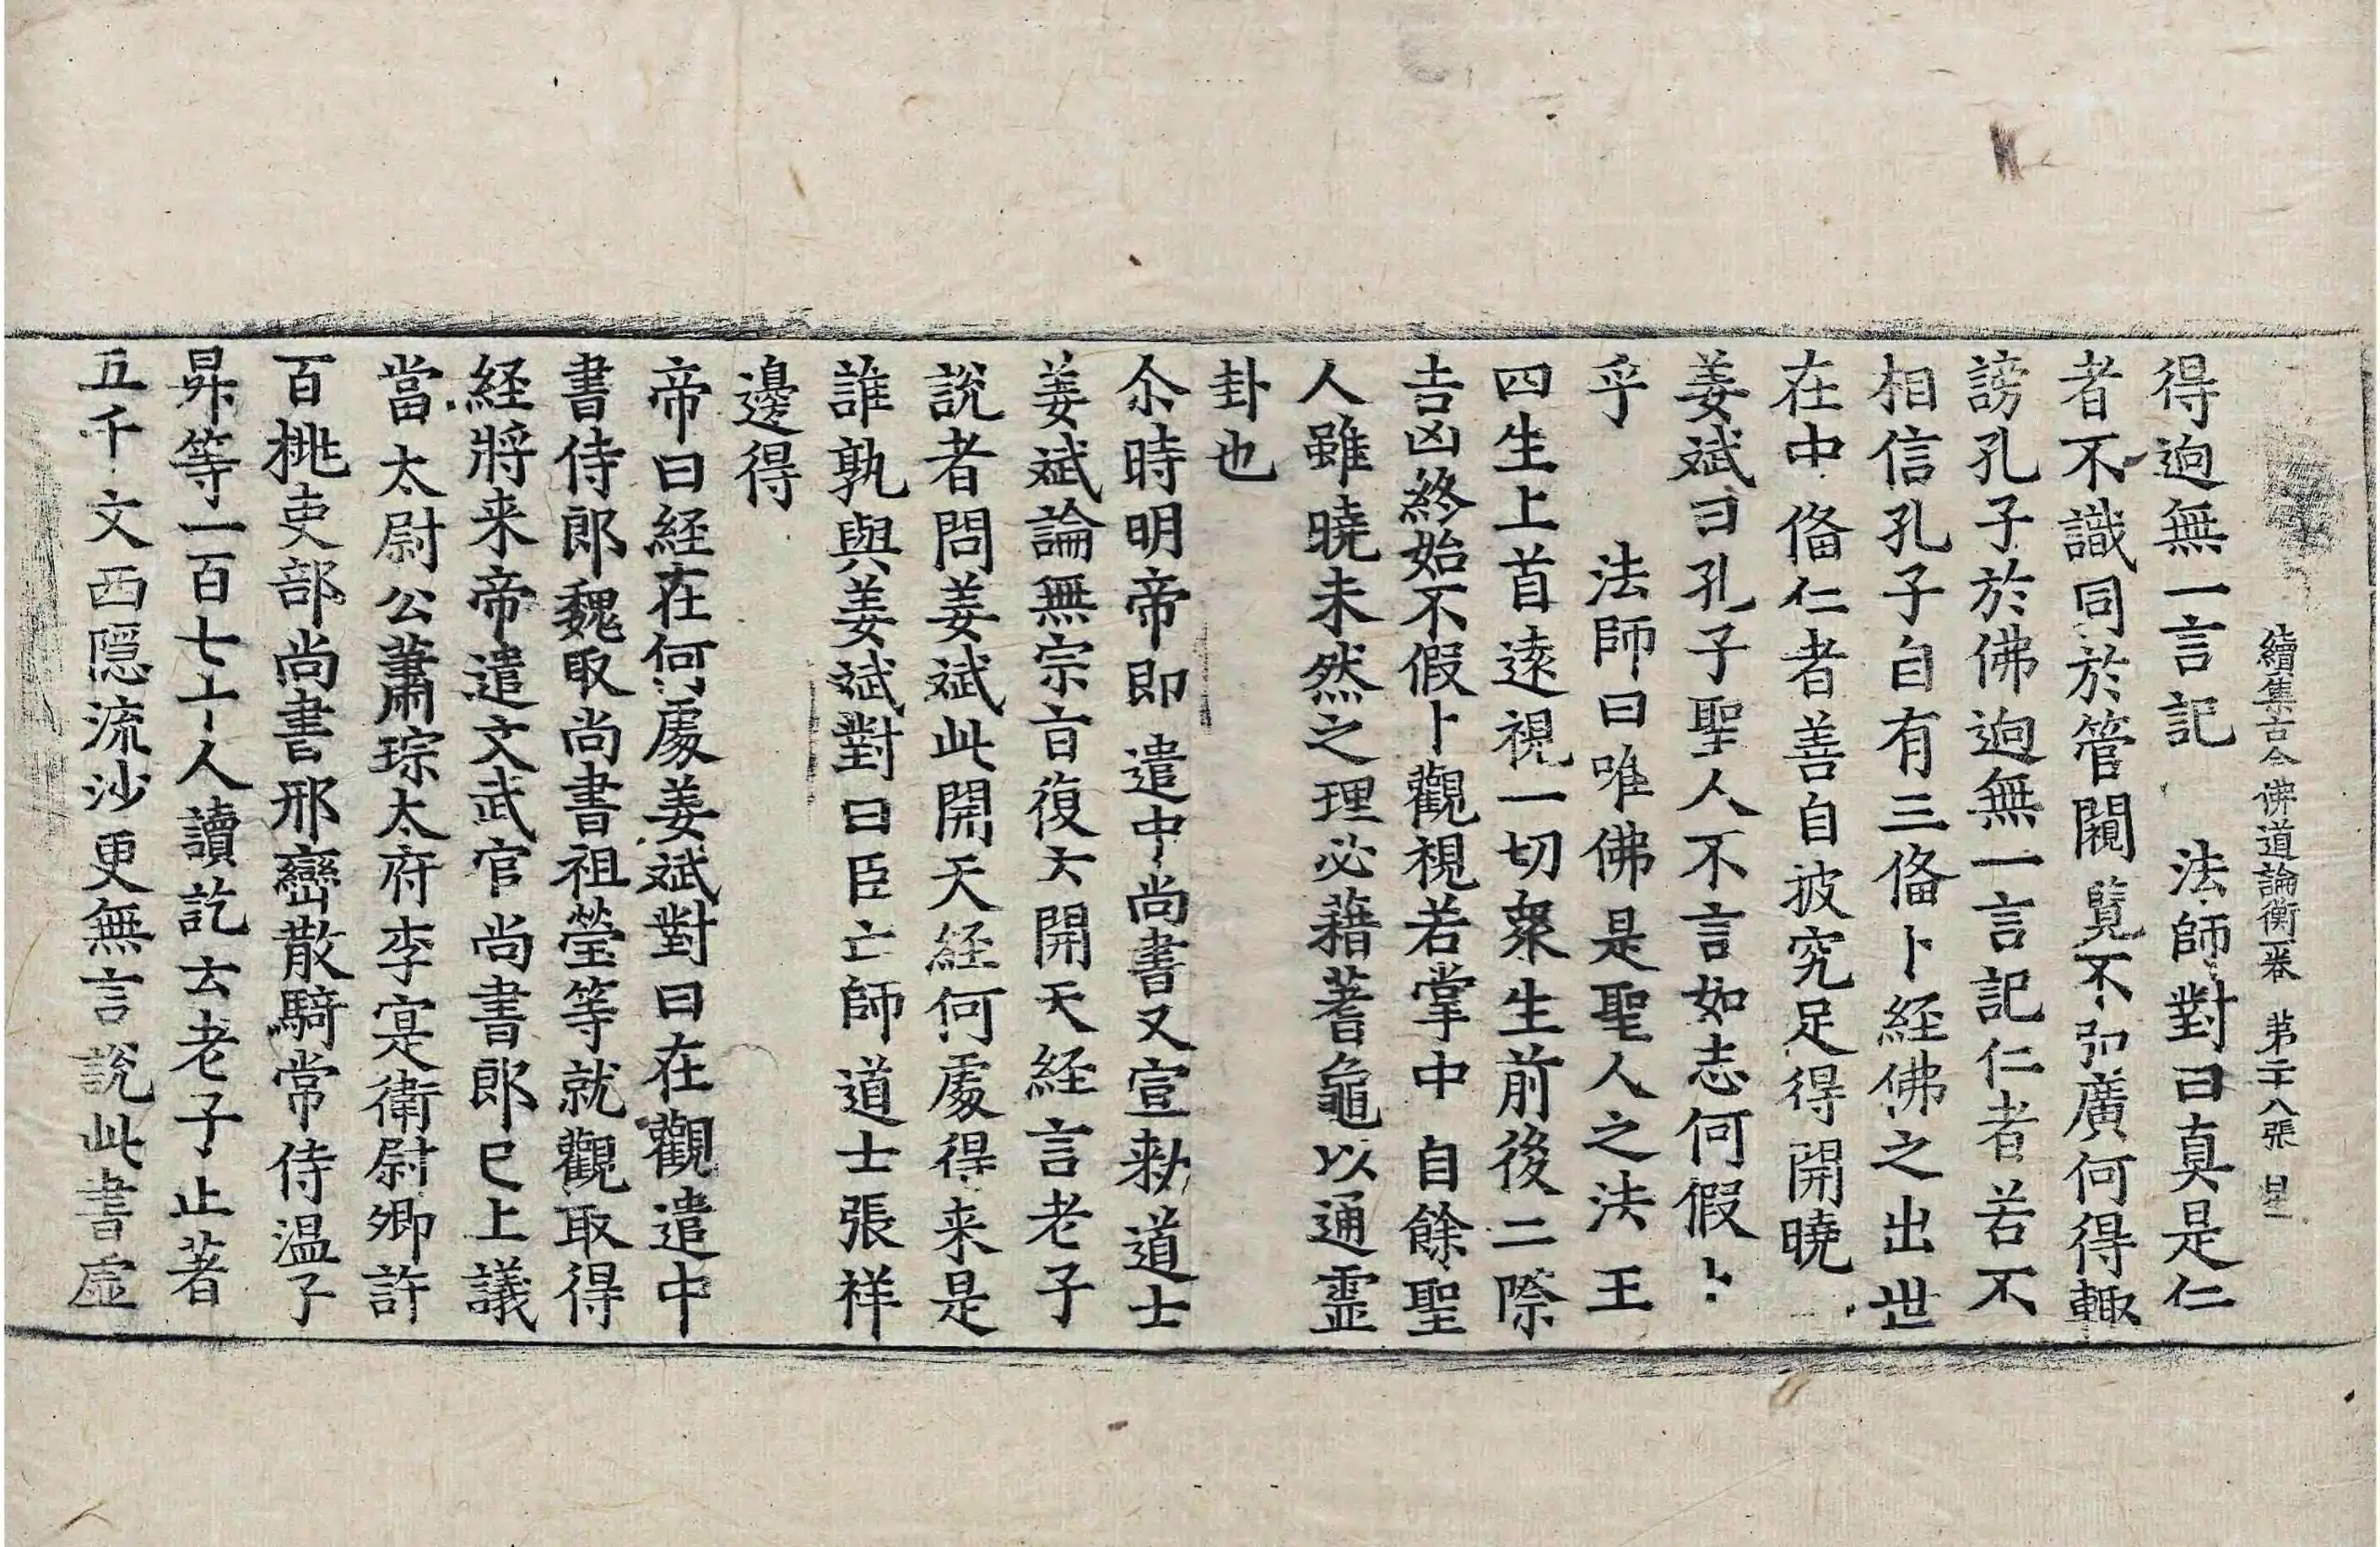 續集古今佛道論衡一卷 第二十八張 星
得逈無一言記 法師對曰真是仁
者不識同於管闚覽不弘廣何得輙
謗孔子於佛逈無一言記仁者若不
相信孔子自有三俻卜経佛之出世
在中俻仁者善自披究足得開曉
姜斌曰孔子聖人不言如志何假卜
乎 法師曰唯佛是聖人之法王
四生上首逺視一切衆生前後二際
吉凶終始不假卜觀視若掌中 自餘聖
人雖曉未然之理必藉蓍龜以通霊
卦也
尒時明帝即 遣中尚書又宣勑道士
姜斌論無宗旨復大開天経言老子
說者問姜斌此開天経何處得来是
誰孰與姜斌對曰臣亡師道士張祥
邊得
帝曰経在何處姜斌對曰在觀遣中
書侍郎魏取尚書祖瑩等就觀取得
経將来帝遣文武官尚書郎巳上議
當太尉公蕭琮太府李寔衛尉卿許
百桃吏部尚書邢巒散騎常侍温子
昇等一百七十人讀訖去老子止著
五千文西隠流沙更無言說此書虛